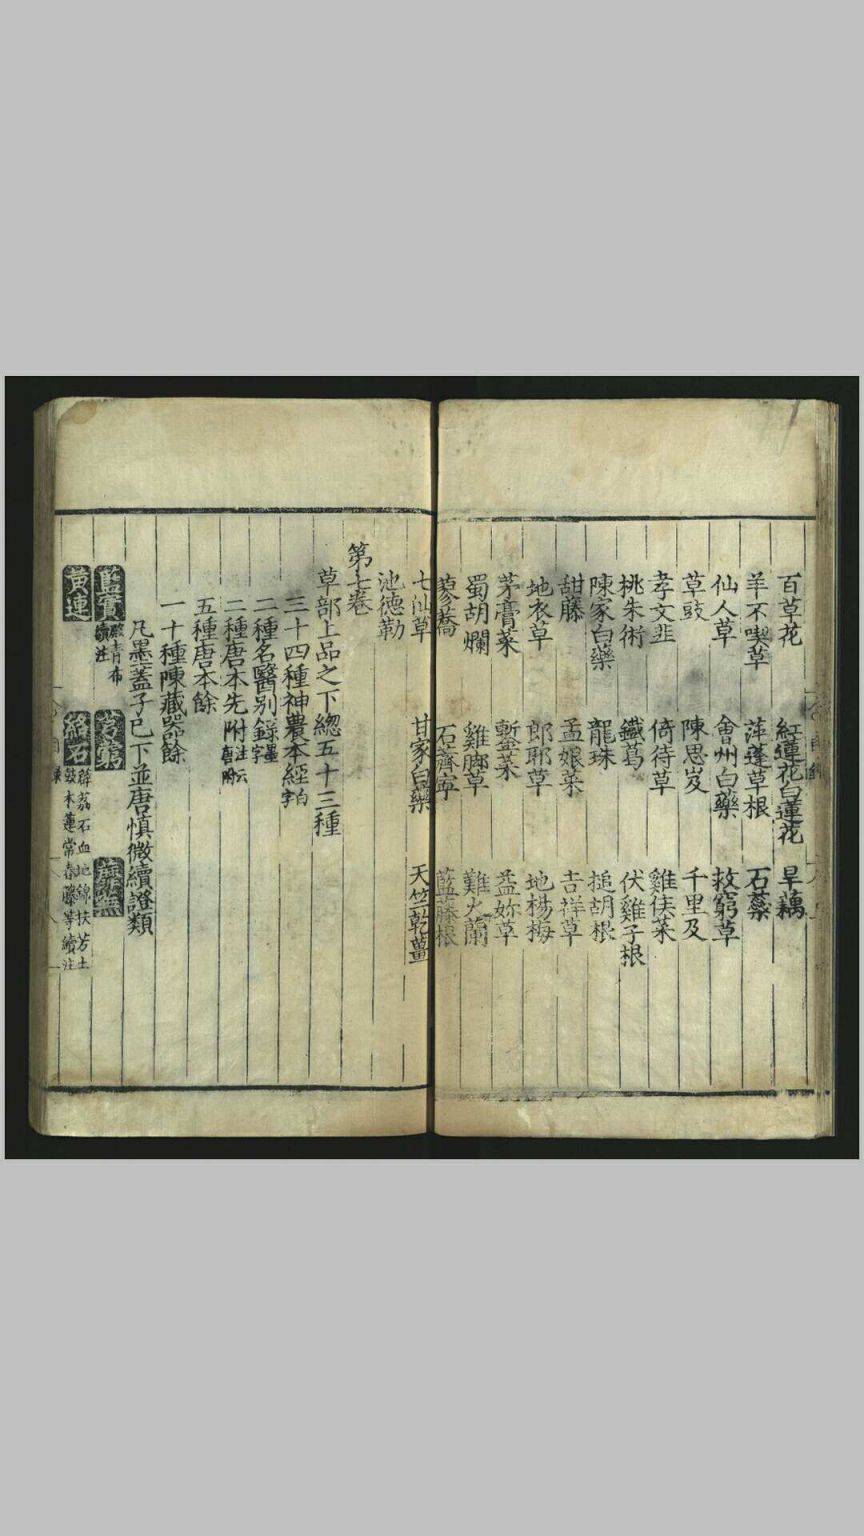 百草花 紅蓮花白蓮花 旱藕
羊不喫草 萍蓬草根 石蘂
仙人草 會州白藥 救窮草
草豉 陳思岌 千里及
孝文韭 倚待草 雞侯菜
桃朱術 鐵葛 伏雞子根
陳家白藥 龍珠 搥胡根
甜藤 孟娘菜 吉祥草
地衣草 郎耶草 地楊梅
茅膏菜 䥷菜 益妳草
蜀胡爛 雞脚草 難火蘭
蓼蕎 石薺寧 藍藤根
七仙草 甘家白藥 天竺乾薑
池德勒
第七卷
草部上品之下總五十三種
三十四種神農本經白字
二種名醫别錄墨字
二種唐本先附注云唐附
五種唐本餘
一十種陳藏器餘
凡墨蓋子已下並唐慎微續證類
藍實澱青布續注 芎藭 蘼蕪
黄連 絡石薜荔石血地錦扶芳土鼓木蓮常春藤等續注